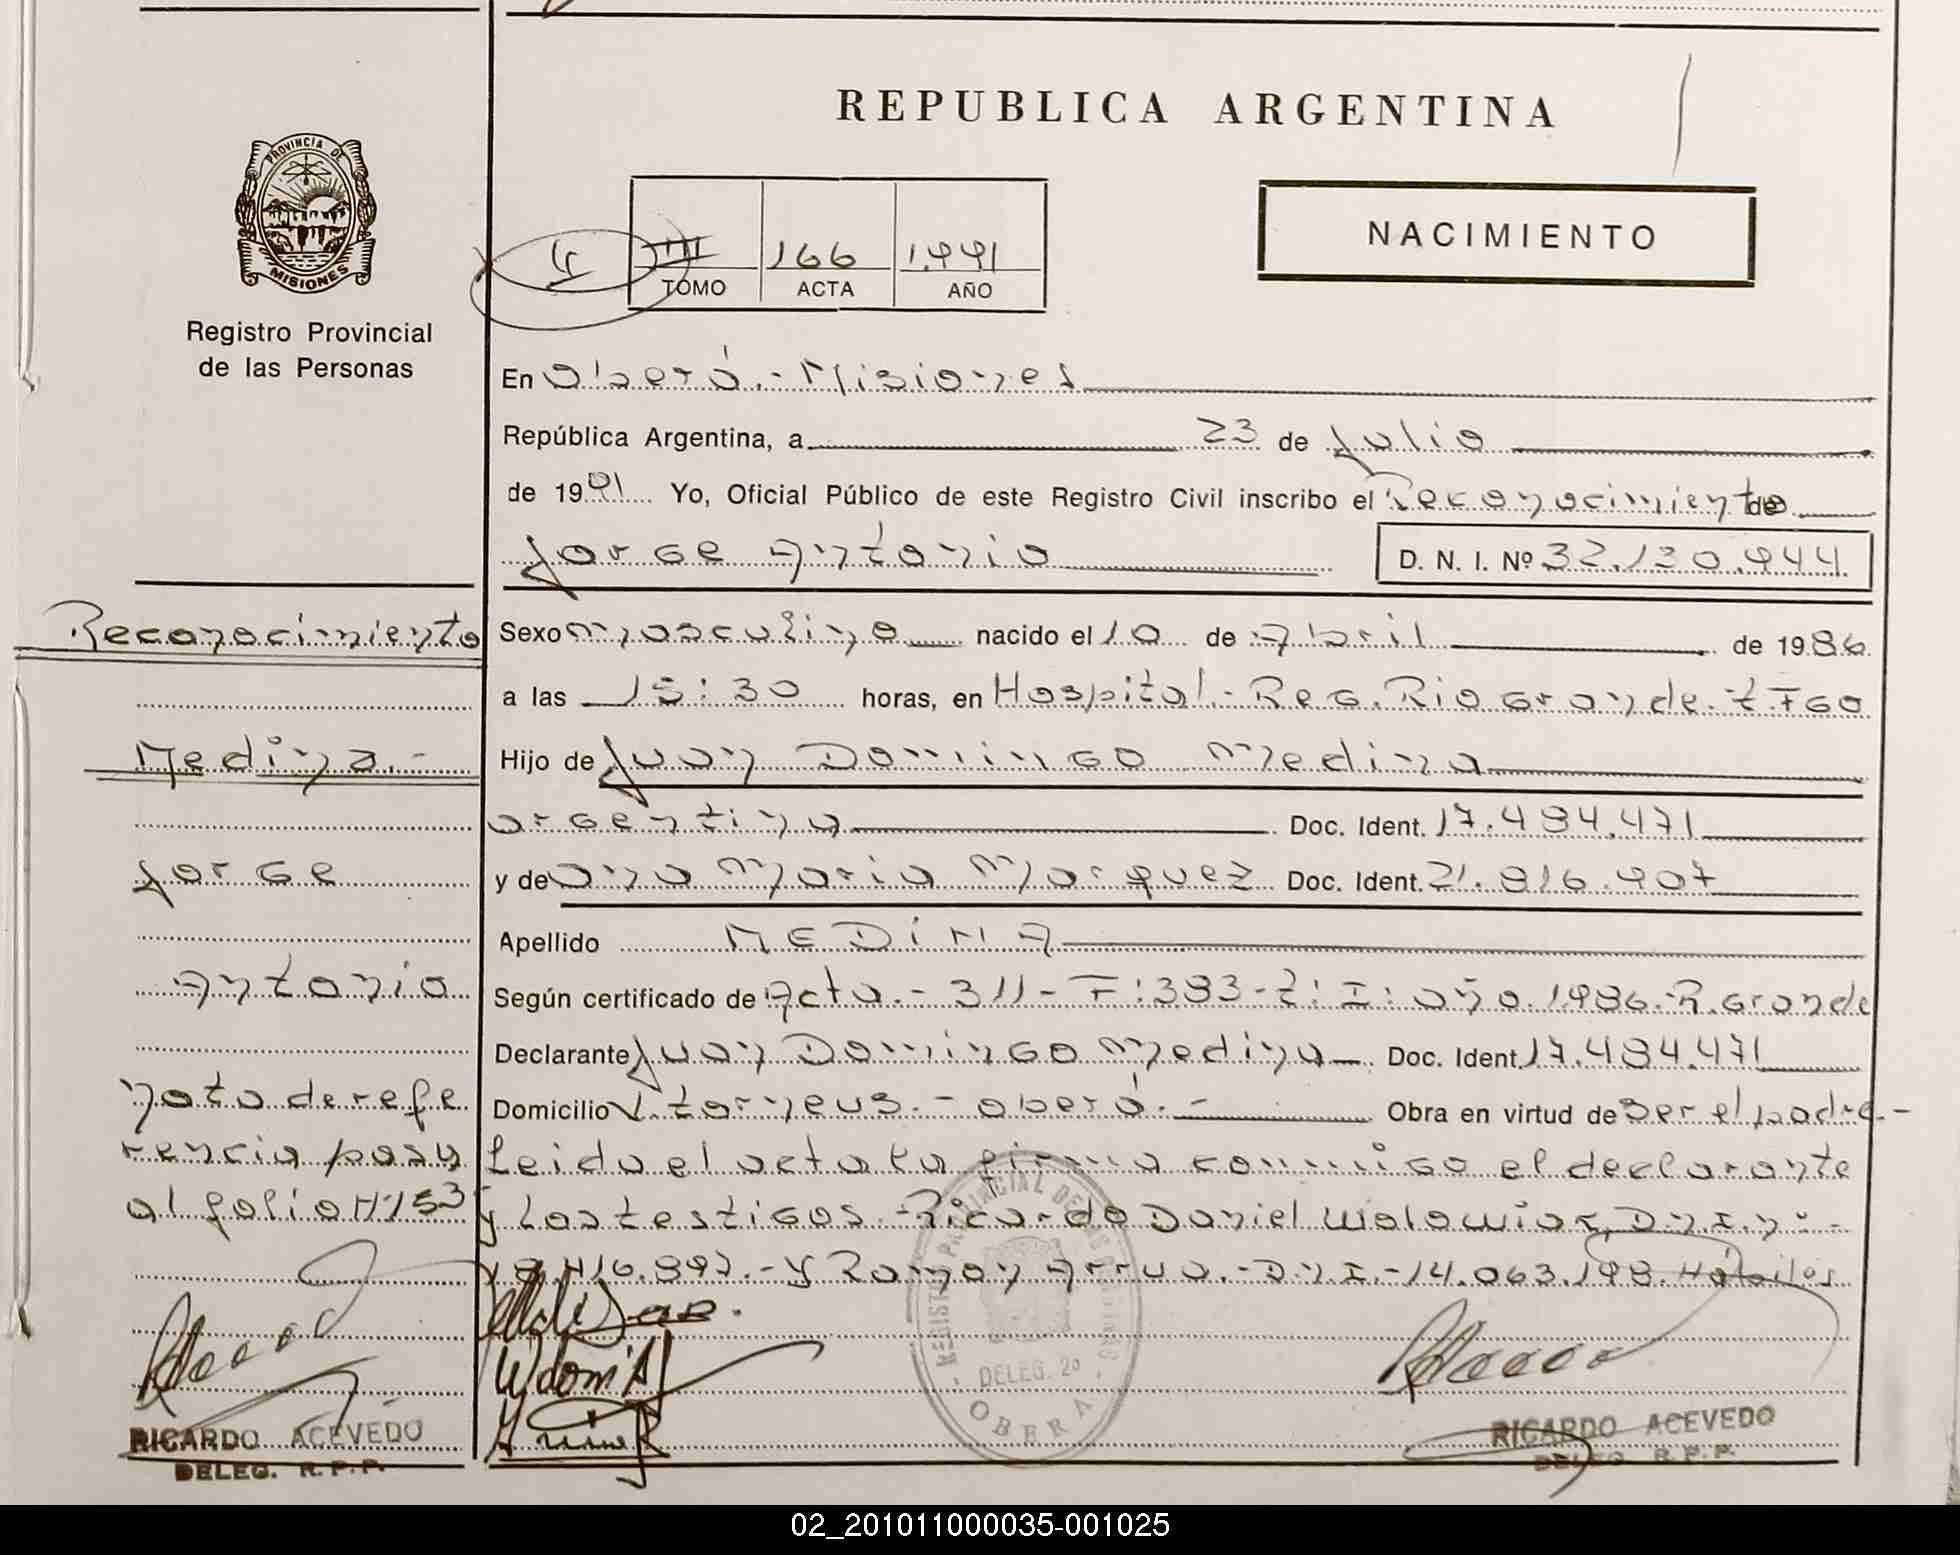 REPUBLICA ARGENTINA
PROVINCIA DE
MISIONES
Registro Provincial
de las Personas
NACIMIENTO
4
III 166 1.991
TOMO ACTA AÑO
En Oberá.- Misiones
República Argentina, a 23 de Julio
de 1991 Yo, Oficial Público de este Registro Civil inscribo el Reconocimiento de
Jorge Antonio D. N. I. Nº 32.130.944
Reconocimiento
Sexo masculino nacido el 10 de Abril de 1986
a las 15:30 horas, en Hospital.- Reg. Rio Grande. T. Fgo
Medina.-
Hijo de Juan Domingo Medina
argentina Doc. Ident. 17.484.471
Jorge
y de Ana Maria Marquez Doc. Ident. 21.816.907
Apellido MEDINA
Antonio
Según certificado de Acta.- 311- F: 383- T: I: año 1.986.- R. Grande
Declarante Juan Domingo Medina Doc. Ident. 17.484.471
nota de refe
Domicilio V. Tarneus.- Oberá.- Obra en virtud de ser el padre.-
rencia pasa
Leida el acta la firma conmigo el declarante
al folio Nº 153
y los testigos.- Ricardo Daniel D.N.I. nº.-
.416.897.- y Ramon Arrua.- D.N.I.- 14.063.198. Hábiles
REGISTRO PROVINCIAL DE LAS PERSONAS
DELEG. 2º
OBERA
RICARDO ACEVEDO
DELEG. R.P.P.
RICARDO ACEVEDO
DELEG. R.P.P.
02_201011000035-001025